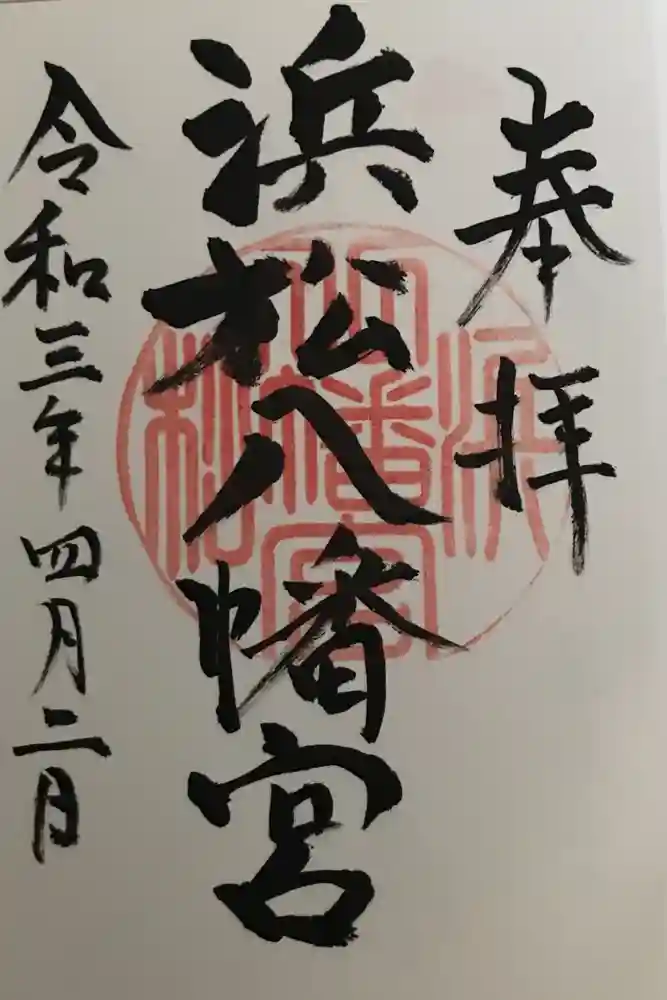 奉拝
浜松八幡宮
令和三年四月二日
浜松八幡宮